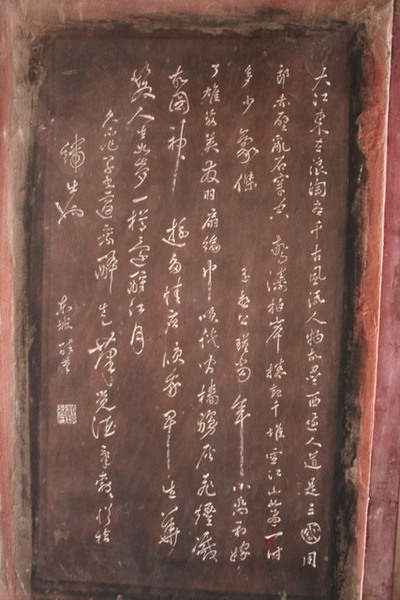 大江東去浪淘盡千古風流人物故壘西邊人道是三國周
郎赤壁亂石穿空驚濤拍岸捲起千堆雪江山如畫一時
多少豪傑遙想公瑾當年小喬初嫁
了雄姿英發羽扇綸巾笑談間檣艣灰飛煙滅
故國神遊多情應笑我早生華
髮人生如夢一樽還酹江月
久不作草書適乘醉走筆覺酒氣勃勃似指
端出也
東坡醉筆